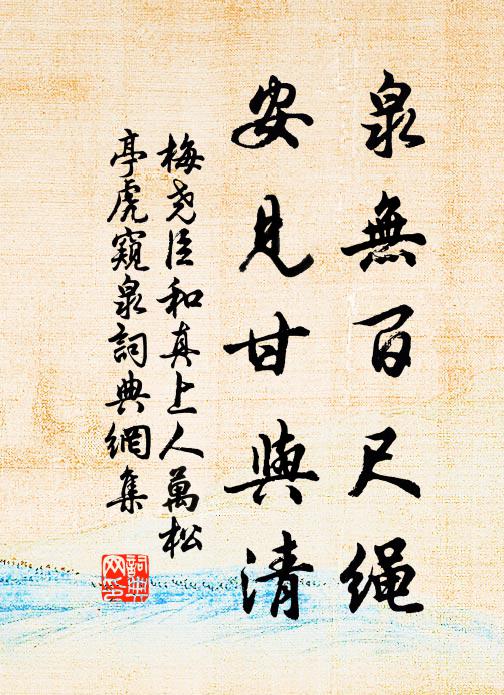 泉無百尺绳
安見甘與清
梅尧臣和真上人萬松
亭虎窺泉詞典網集
詞典网集